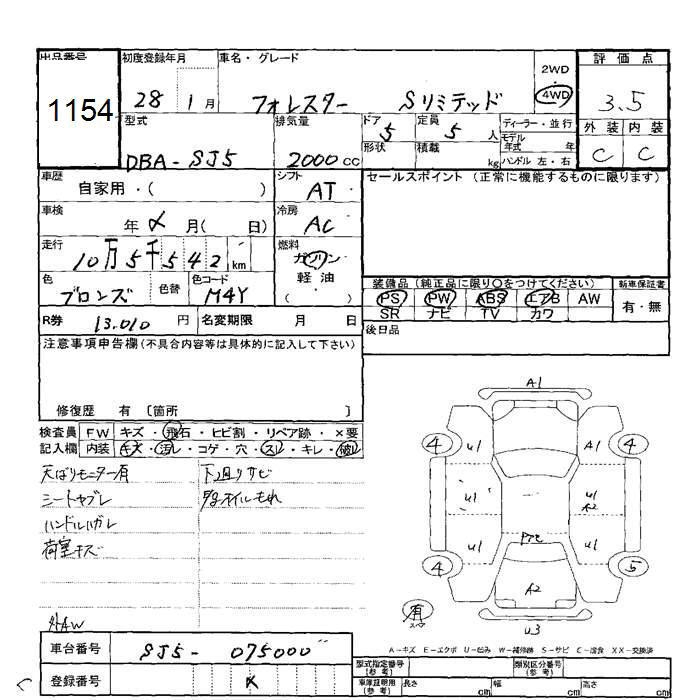 出品番号 初度登録年月 車名・グレード 2WD 評価点
1154 28 1月 フォレスター Sリミテッド 4WD 3.5
型式 排気量 ドア 定員 ディーラー・並行 外装 内装
DBA-SJ5 2000cc 5 5人 モデル年式 年 C C
形状 積載 kg ハンドル 左・右
車歴 シフト セールスポイント (正常に機能するものに限ります)
自家用・( ) AT
車検 冷房
年 月( 日) AC
走行 燃料
10万5千542km ガソリン
軽油
( )
色 色替 色コード 装備品(純正品に限り○をつけてください) 新車保証書
ブロンズ M4Y PS PW ABS エアB AW 有・無
SR ナビ TV カワ
R券 13,010円 名変期限 月 日 後日品
注意事項申告欄(不具合内容等は具体的に記入して下さい)
修復歴 有 [箇所 ]
検査員 FW キズ・飛石・ヒビ割・リペア跡・×要
記入欄 内装 キズ・汚れ・コゲ・穴・スレ・キレ・破れ
天ばりモニター有 下廻りサビ
シートヤブレ
ハンドルハゲレ
荷室キズ
社外AW
A1
4 U1 A1 4
U1 U1
A2
U1 U1
4 5
A2
有
スペア
U3
A-キズ E-エクボ U-凹み W-補修跡 S-サビ C-腐食 XX-交換済
車台番号 SJ5-075000
登録番号
型式指定番号(参考) 類別区分番号(参考)
車庫証明用(参考) 長さ cm 幅 cm 高さ cm